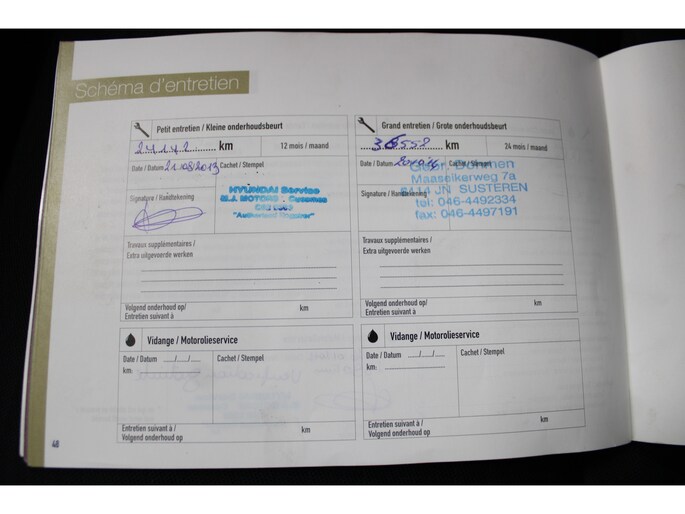 Schéma d'entretien
Petit entretien / Kleine onderhoudsbeurt
km 12 mois / maand
Date / Datum 21/08/2013 Cachet / Stempel
HYUNDAI Service
M.J. MOTORS
"Authorised Repairer"
Signature / Handtekening
Travaux supplémentaires /
Extra uitgevoerde werken
Volgend onderhoud op/ km
Entretien suivant à
Grand entretien / Grote onderhoudsbeurt
km 24 mois / maand
Date / Datum Cachet / Stempel
Maaseikerweg 7a
6114 JN SUSTEREN
tel: 046-4492334
fax: 046-4497191
Signature / Handtekening
Travaux supplémentaires /
Extra uitgevoerde werken
Volgend onderhoud op/ km
Entretien suivant à
Vidange / Motorolieservice
Date / Datum ..../..../.... Cachet / Stempel
km:
Entretien suivant à / km
Volgend onderhoud op
Vidange / Motorolieservice
Date / Datum ..../..../.... Cachet / Stempel
km:
Entretien suivant à / km
Volgend onderhoud op
48